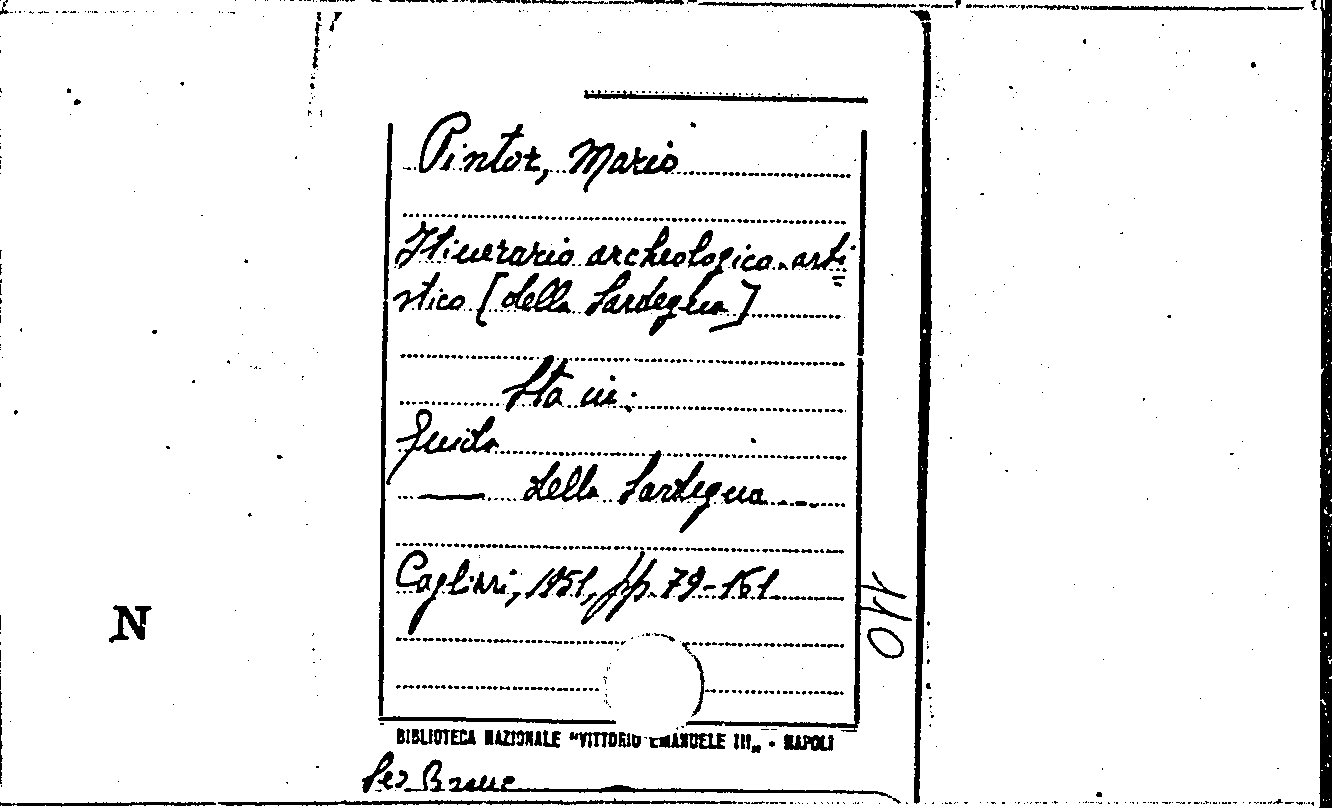 Pintor, Mario
Itinerario archeologico-arti=
stico [della Sardegna]
Sta in:
Guida
— della Sardegna...
Cagliari, 1951, pp. 79-161
N
BIBLIOTECA NAZIONALE "VITTORIO EMANUELE III„ - NAPOLI